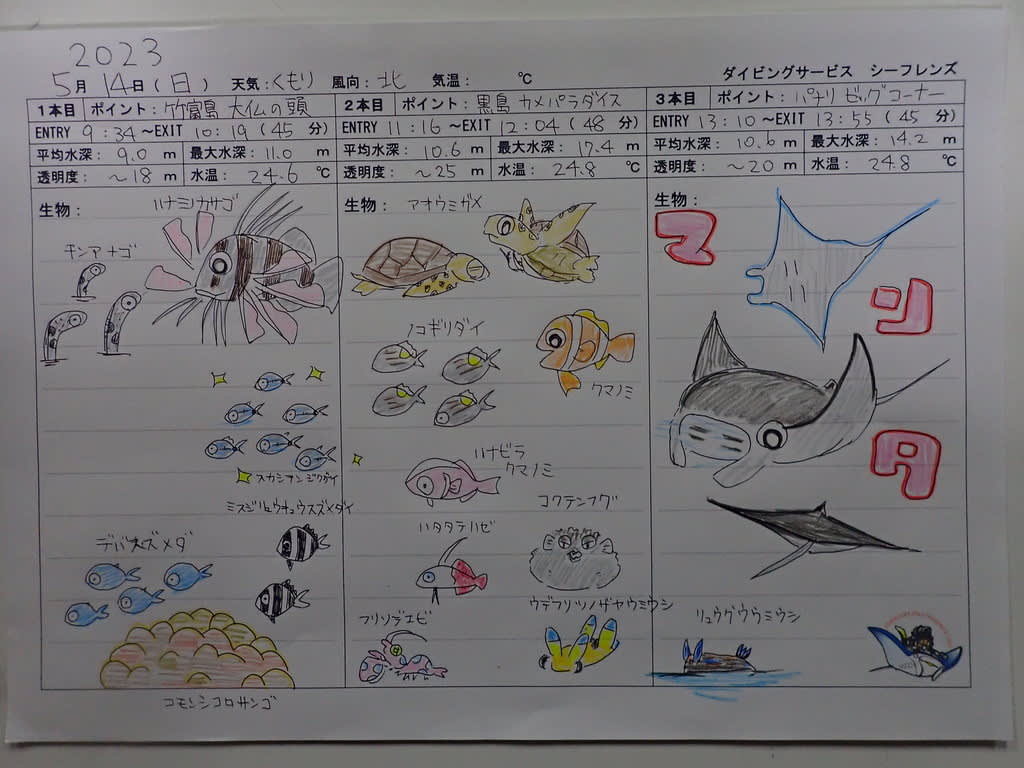 2023
5月 14日(日) 天気:くもり 風向:北 気温: ℃
ダイビングサービス シーフレンズ
1本目 ポイント:竹富島 大仏の頭
ENTRY 9:34~EXIT 10:19(45 分)
平均水深: 9.0 m 最大水深: 11.0 m
透明度: ~18 m 水温: 24.6 ℃
生物:
ハナミノカサゴ
チンアナゴ
スカシテンジクダイ
ミスジリュウキュウスズメダイ
デバスズメダ
コモンシコロサンゴ
2本目 ポイント:黒島 カメパラダイス
ENTRY 11:16~EXIT 12:04(48 分)
平均水深: 10.6 m 最大水深: 17.4 m
透明度: ~25 m 水温: 24.8 ℃
生物:
アオウミガメ
ノコギリダイ
クマノミ
ハナビラ
クマノミ
コクテンフグ
ハタタテハゼ
ウデフリツノザヤウミウシ
フリソデエビ
3本目 ポイント:パナリ ビッグコーナー
ENTRY 13:10~EXIT 13:55(45 分)
平均水深: 10.6 m 最大水深: 14.2 m
透明度: ~20 m 水温: 24.8 ℃
生物:
マ
ン
タ
リュウグウウミウシ